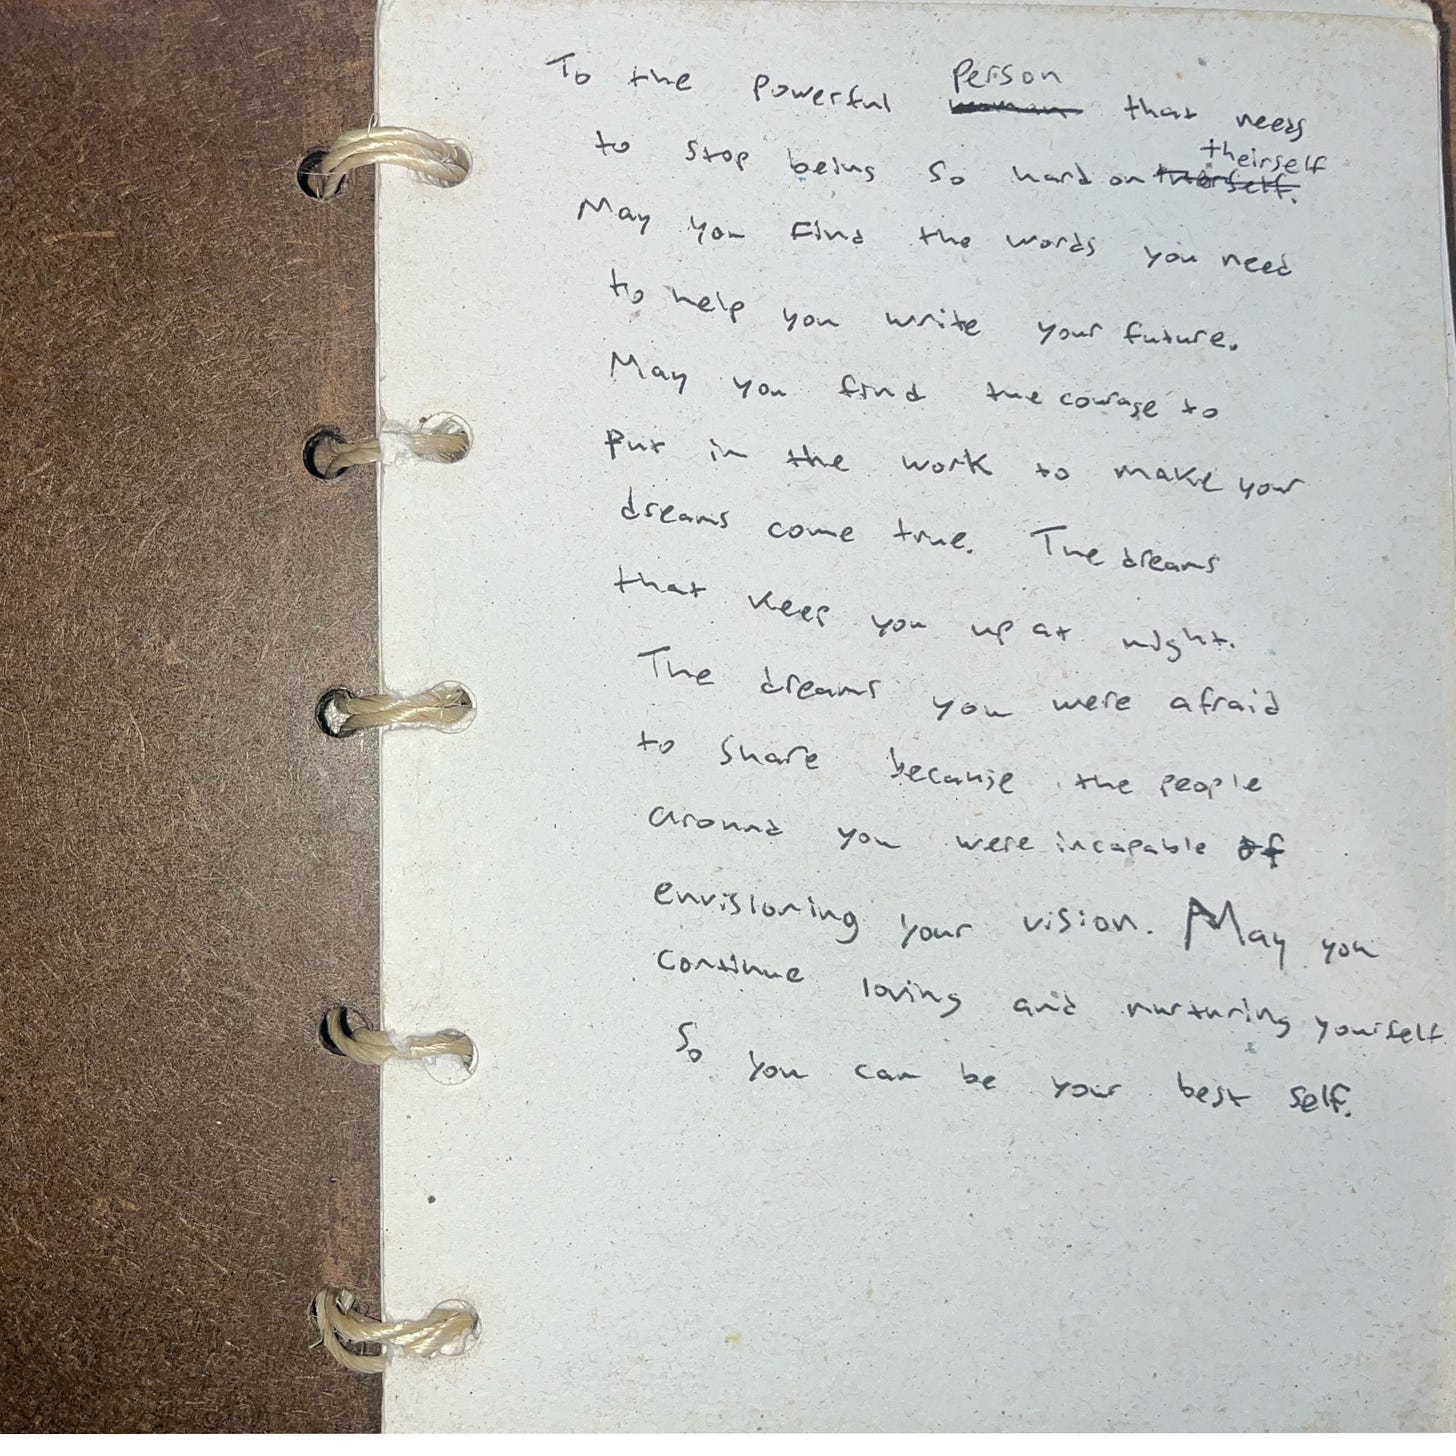 To the powerful person that needs
to stop being so hard on theirself
May you find the words you need
to help you write your future.
May you find the courage to
Put in the work to make your
dreams come true. The dreams
that keep you up at night.
The dreams you were afraid
to share because the people
around you were incapable of
envisioning your vision. May you
continue loving and nurturing yourself
So you can be your best self.